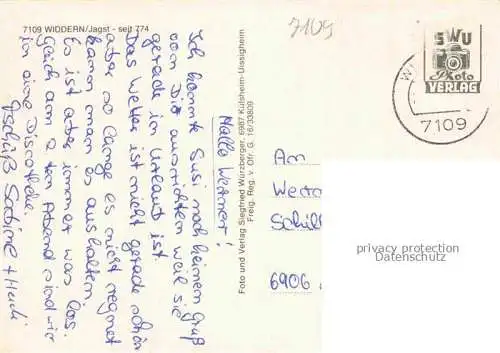 7109 WIDDERN/Jagst - seit 774
7109
SWU
Photo
VERLAG
7109
Hallo Werner!
Ich konnte Susi noch keinen Gruß
von Dir ausrichten weil sie
gerade in Urlaub ist.
Das Wetter ist nicht gerade schön
aber so lange es nicht regnet
kann man es aushalten.
Es ist aber immer was los.
Gleich am 2ten Abend sind wir
in eine Discothek.
Tschüß Sabine + Heidi
Foto und Verlag Siegfried Würzberger, 6987 Külsheim-Uissigheim
Freig. Reg. v. Ofr. G. 16/33809
An
Wer
Schil
6906
privacy protection
Datenschutz